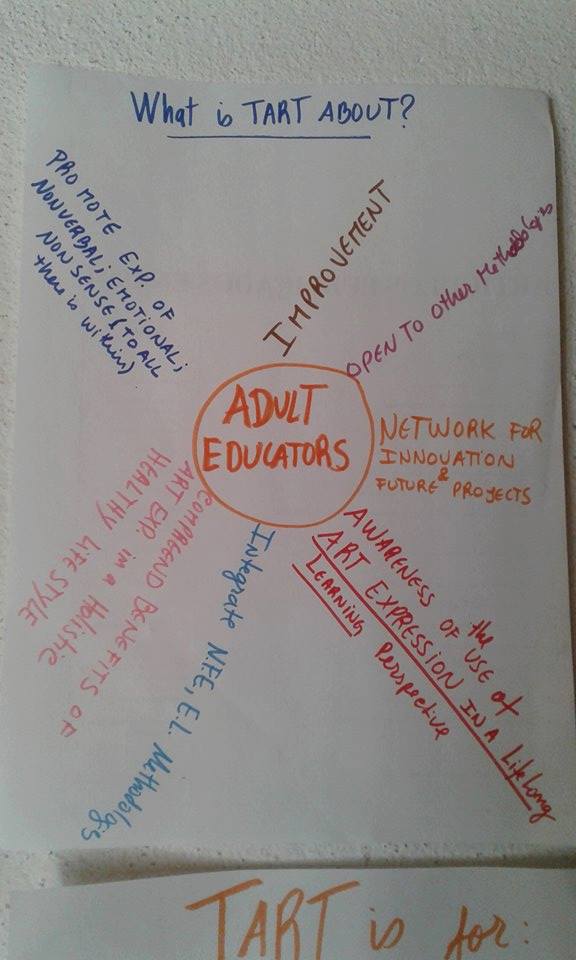 What is TART ABOUT?
PROMOTE EXP. OF
NONVERBAL; EMOTIONAL;
NONSENSE (TO ALL
there is within)
IMPROVEMENT
OPEN TO OTHER Methodologies
ADULT
EDUCATORS
NETWORK FOR
INNOVATION
&
FUTURE PROJECTS
AWARENESS OF the USE of
ART EXPRESSION IN A LifeLong
LEARNING Perspective
Integrate N.F.E, E.L. Methodologies
COMPREEND BENEFITS OF
ART EXP. in a Holistic
HEALTHY LIFE STYLE
TART is for: